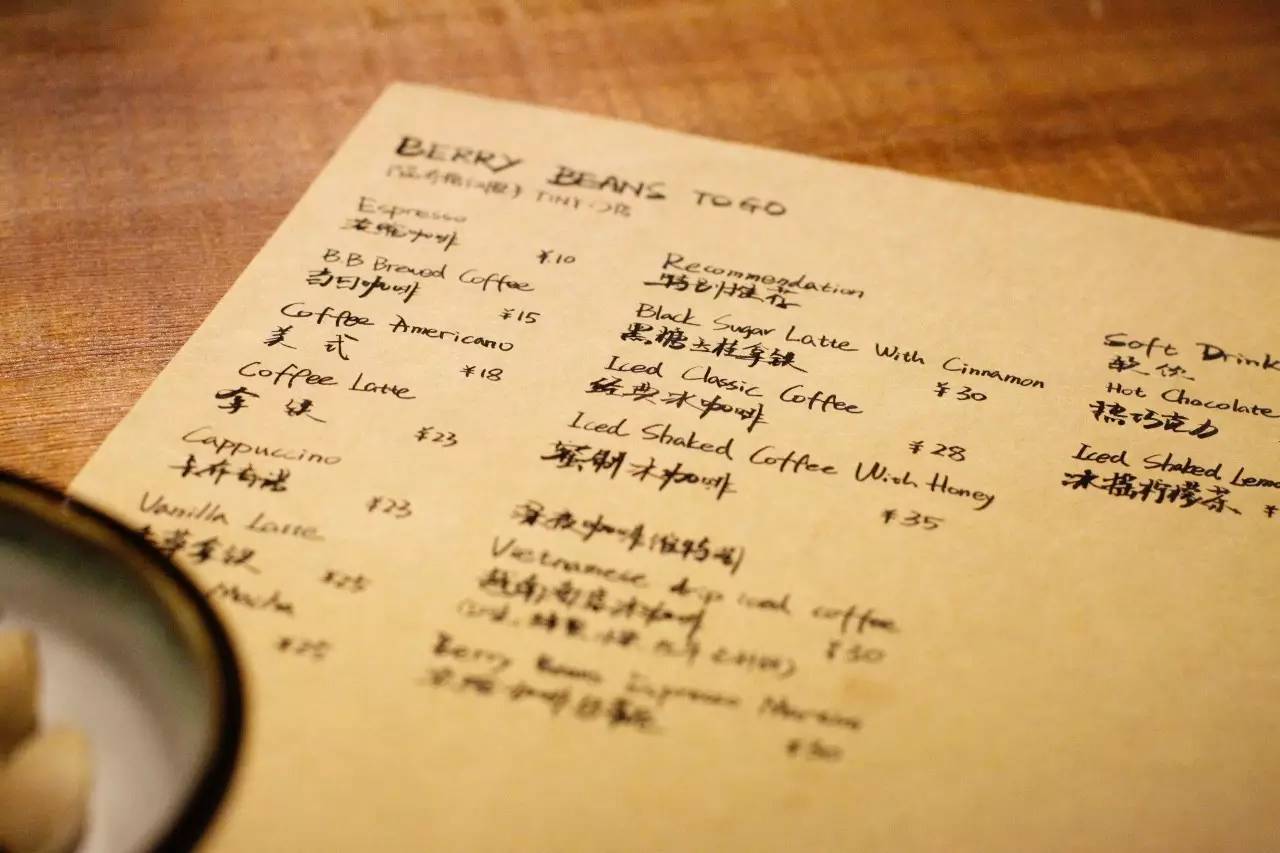 BERRY BEANS TO GO
TINY 门店
Espresso
浓缩咖啡
¥10
B.B Brewed Coffee
当日咖啡
¥15
Coffee Americano
美 式
¥18
Coffee Latte
拿 铁
¥23
Cappuccino
卡布奇诺
¥23
Vanilla Latte
拿铁
¥25
Mocha
¥25
Recommendation
特别推荐
Black Sugar Latte With Cinnamon
黑糖兰桂拿铁
¥30
Iced Classic Coffee
经典冰咖啡
¥28
Iced Shaked Coffee With Honey
蜜制冰咖啡
¥35
深夜咖啡
Vietnamese drip iced coffee
越南滴落冰咖啡
¥30
Berry Beans Espresso
浓缩咖啡
Soft Drink
软饮
Hot Chocolate
热巧克力
Iced Shaked
冰摇柠檬茶
¥